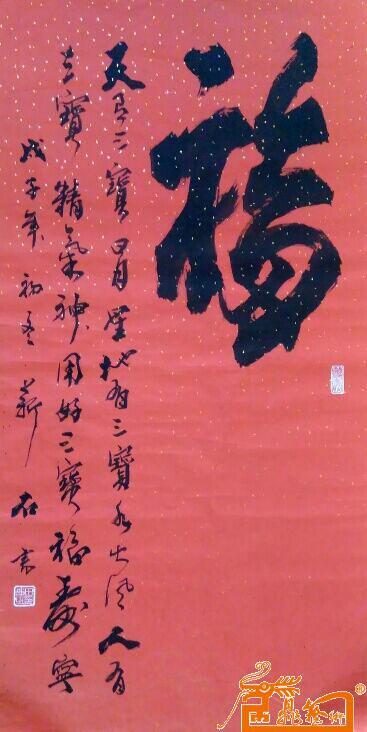 福
天有三寶日月星地有三寶水火風人有
三寶精氣神用好三寶福壽寧
戊子年初冬薪石書